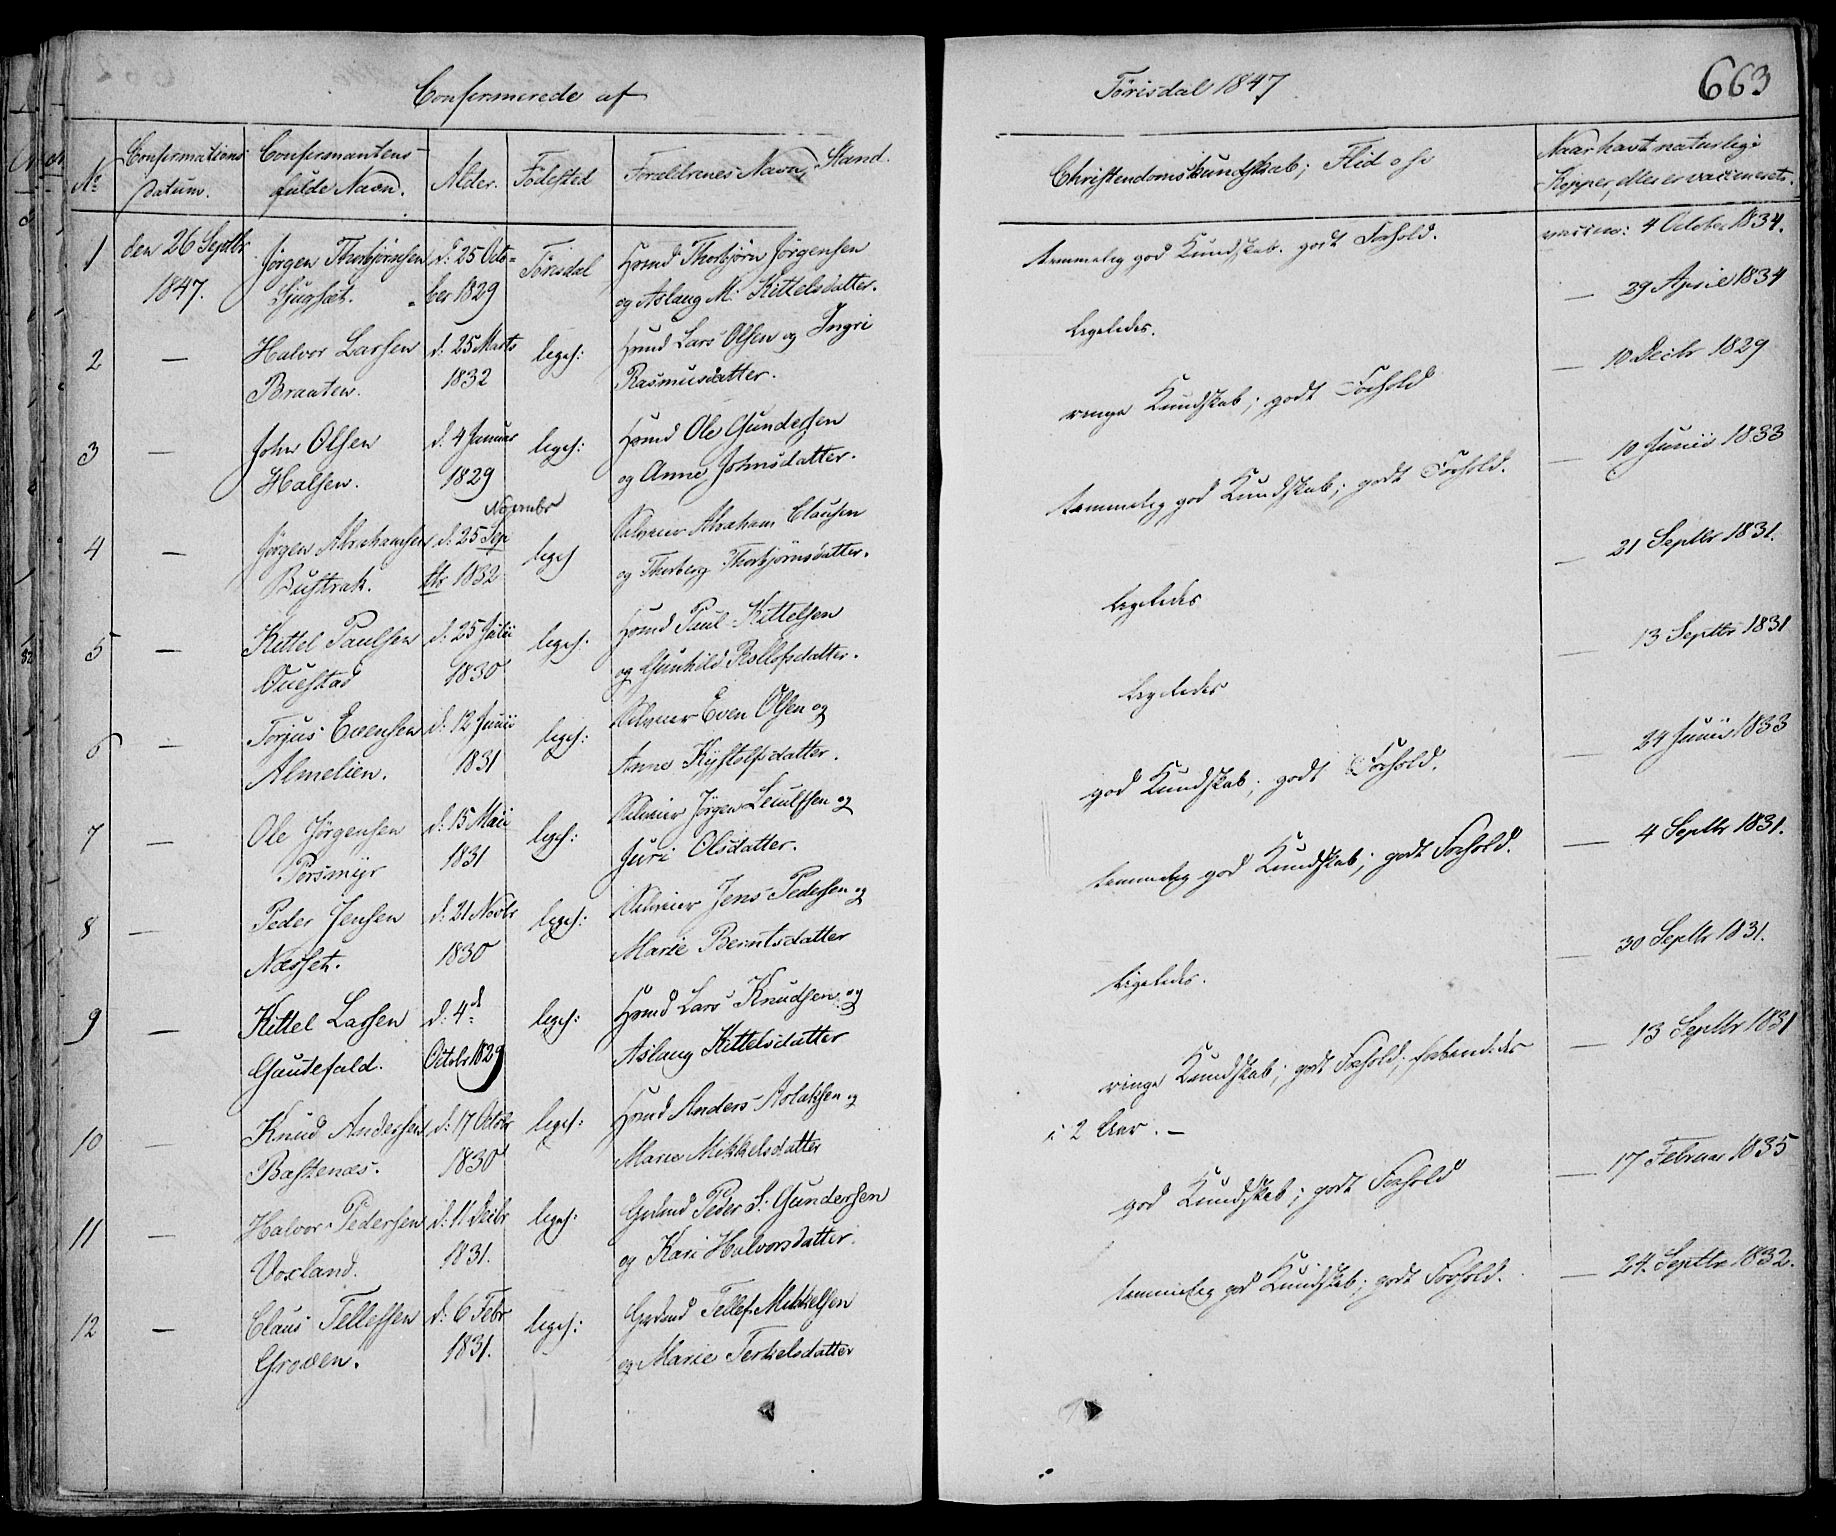 Confermerede af
Tørisdal 1847
663
No
Confirmations Datum.
Confermantens fulde Navn.
Alder.
Fødested
Foraldrenes Navn, Stand.
Christendomskundskab; Flid osv
Naar havt naturlige Kopper, eller er vaccineret.
1
den 26 Septbr 1847.
Jørgen Thorbjørnsen
d: 25 Octo-
ber 1829
Tørisdal
Hmd Thorbjørn Jørgensen
og Aslaug M. Kittelsdatter.
temmelig god Kundskab. godt Forhold.
vaccin: 4 October 1834.
2
—
Halvor Larsen
Braaten.
d: 25 Marts
1832
liges:
Hmd Lars Olsen og Ingri
Rasmusdatter.
ligeledes.
— 29 April 1834
3
—
John Olsen
Halsen.
d. 4 Januar
1829
liges:
Hmd Ole Gundersen
og Anne Johnsdatter.
ringe Kundskab; godt Forhold
— 10 Decbr 1829
4
—
Jørgen Abrahamsen
Bustrak.
November
d: 25 Sep
tbr 1832
liges
Abraham Clausen
og Thorberg Thorbjørnsdatter.
temmelig god Kundskab; godt Forhold.
— 10 Junii 1833
5
—
Kittel Paulsen
Ouestad
d. 25 Julii
1830
liges:
Hmd Paul Kittelsen
og Gunhild Rollefsdatter.
ligeledes
— 21 Septbr 1831.
6
—
Torjus Evensen
Almelien.
d. 12 Junii
1831
liges:
Even Olsen og
Anne Kystolfsdatter.
ligeledes
— 13 Septbr 1831
7
—
Ole Jørgensen
Porsmyr
d. 15 Maii
1831
liges:
Jørgen Leulfsen og
Juri Olsdatter.
god Kundskab; godt Forhold.
— 24 Junii 1833
8
—
Peder Jensen
Næsset.
d: 21 Novbr
1830
liges:
Jens Pedersen og
Marie Berntsdatter
temmelig god Kundskab; godt Forhold.
— 4 Septbr 1831.
9
—
Kittel Larsen
Gautefald.
d: 4d
Octobr 1829
liges:
Hmd Lars Knudsen og
Aslaug Kittelsdatter
ligeledes.
— 30 Septbr 1831.
10
—
Knud Andersen
Bastenæs.
d: 17 Octobr
1830
liges:
Hmd Anders Aslaksen og
Maren Mikkelsdatter
ringe Kundskab; godt Forhold; forberedes
i 2 Aar. —
— 13 Septbr 1831
11
—
Halvor Pedersen
Voxland.
d. 11 Decbr
1831.
liges:
Grdmd Peder S. Gundersen
og Kari Halvorsdatter.
god Kundskab; godt Forhold
— 17 Februar 1835
12
—
Claus Tellefsen
Groven.
d. 6 Febr
1831.
liges:
Grdmd Tellef Mikkelsen
og Marie Terkelsdatter
temmelig god Kundskab; godt Forhold.
— 24. Septbr 1832.